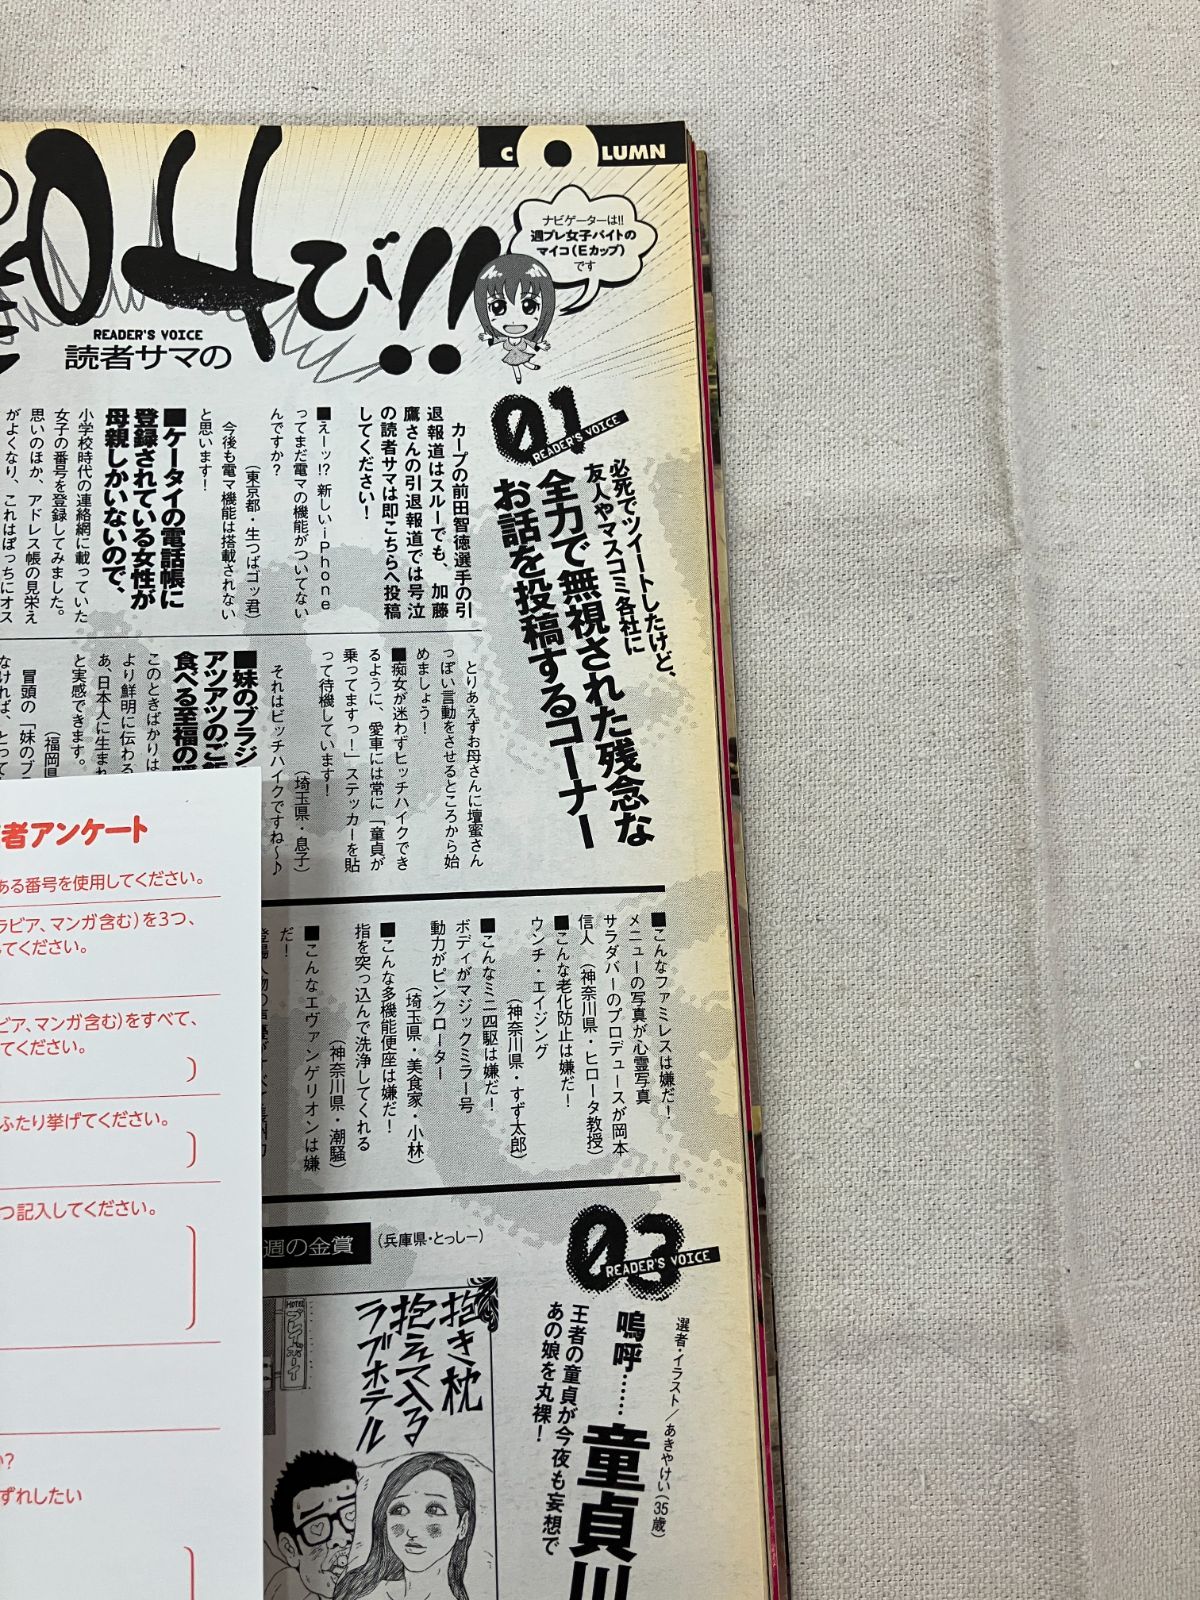 COLUMN
ナビゲーターは!!
週プレ女子バイトの
マイコ(Eカップ)
です
叫び!!
READER'S VOICE
読者サマの
01
READER'S VOICE
必死でツイートしたけど、
友人やマスコミ各社に
全力で無視された残念な
お話を投稿するコーナー
カープの前田智徳選手の引
退報道はスルーでも、加藤
鷹さんの引退報道では号泣
の読者サマは即こちらへ投稿
してください!
■えーッ!? 新しいiPhone
ってまだ電マの機能がついてない
んですか?
(東京都・生つばゴッ君)
今後も電マ機能は搭載されない
と思います!
■ケータイの電話帳に
登録されている女性が
母親しかいないので、
小学校時代の連絡網に載っていた
女子の番号を登録してみました。
思いのほか、アドレス帳の見栄え
がよくなり、これはぼっちにオス
とりあえずお母さんに壇蜜さん
っぽい言動をさせるところから始
めましょう!
■痴女が迷わずヒッチハイクでき
るように、愛車には常に「童貞が
乗ってますっ!」ステッカーを貼
って待機しています!
(埼玉県・息子)
それはビッチハイクですね〜♪
■妹のブラジ
アツアツのご飯
食べる至福の
このときばかりは
より鮮明に伝わる
あ、日本人に生まれ
と実感できます。
(福岡県
冒頭の「妹のブ
なければ、とって
■こんなファミレスは嫌だ!
メニューの写真が心霊写真
サラダバーのプロデュースが岡本
信人 (神奈川県・ヒロータ教授)
■こんな老化防止は嫌だ!
ウンチ・エイジング
(神奈川県・すず太郎)
■こんなミニ四駆は嫌だ!
ボディがマジックミラー号
動力がピンクローター
(埼玉県・美食家・小林)
■こんな多機能便座は嫌だ!
指を突っ込んで洗浄してくれる
(神奈川県・潮騒)
■こんなエヴァンゲリオンは嫌
だ!
03
READER'S VOICE
選者・イラスト/あきやけい(35歳)
嗚呼……童貞川
王者の童貞が今夜も妄想で
あの娘を丸裸!
週の金賞
(兵庫県・とっしー)
抱き枕
抱えて入る
ラブホテル
HOTEL
プレイボーイ
者アンケート
ある番号を使用してください。
ラビア、マンガ含む)を3つ、
てください。
ビア、マンガ含む)をすべて、
てください。
)
ふたり挙げてください。
)
つ記入してください。
)
か?
ずれしたい
)